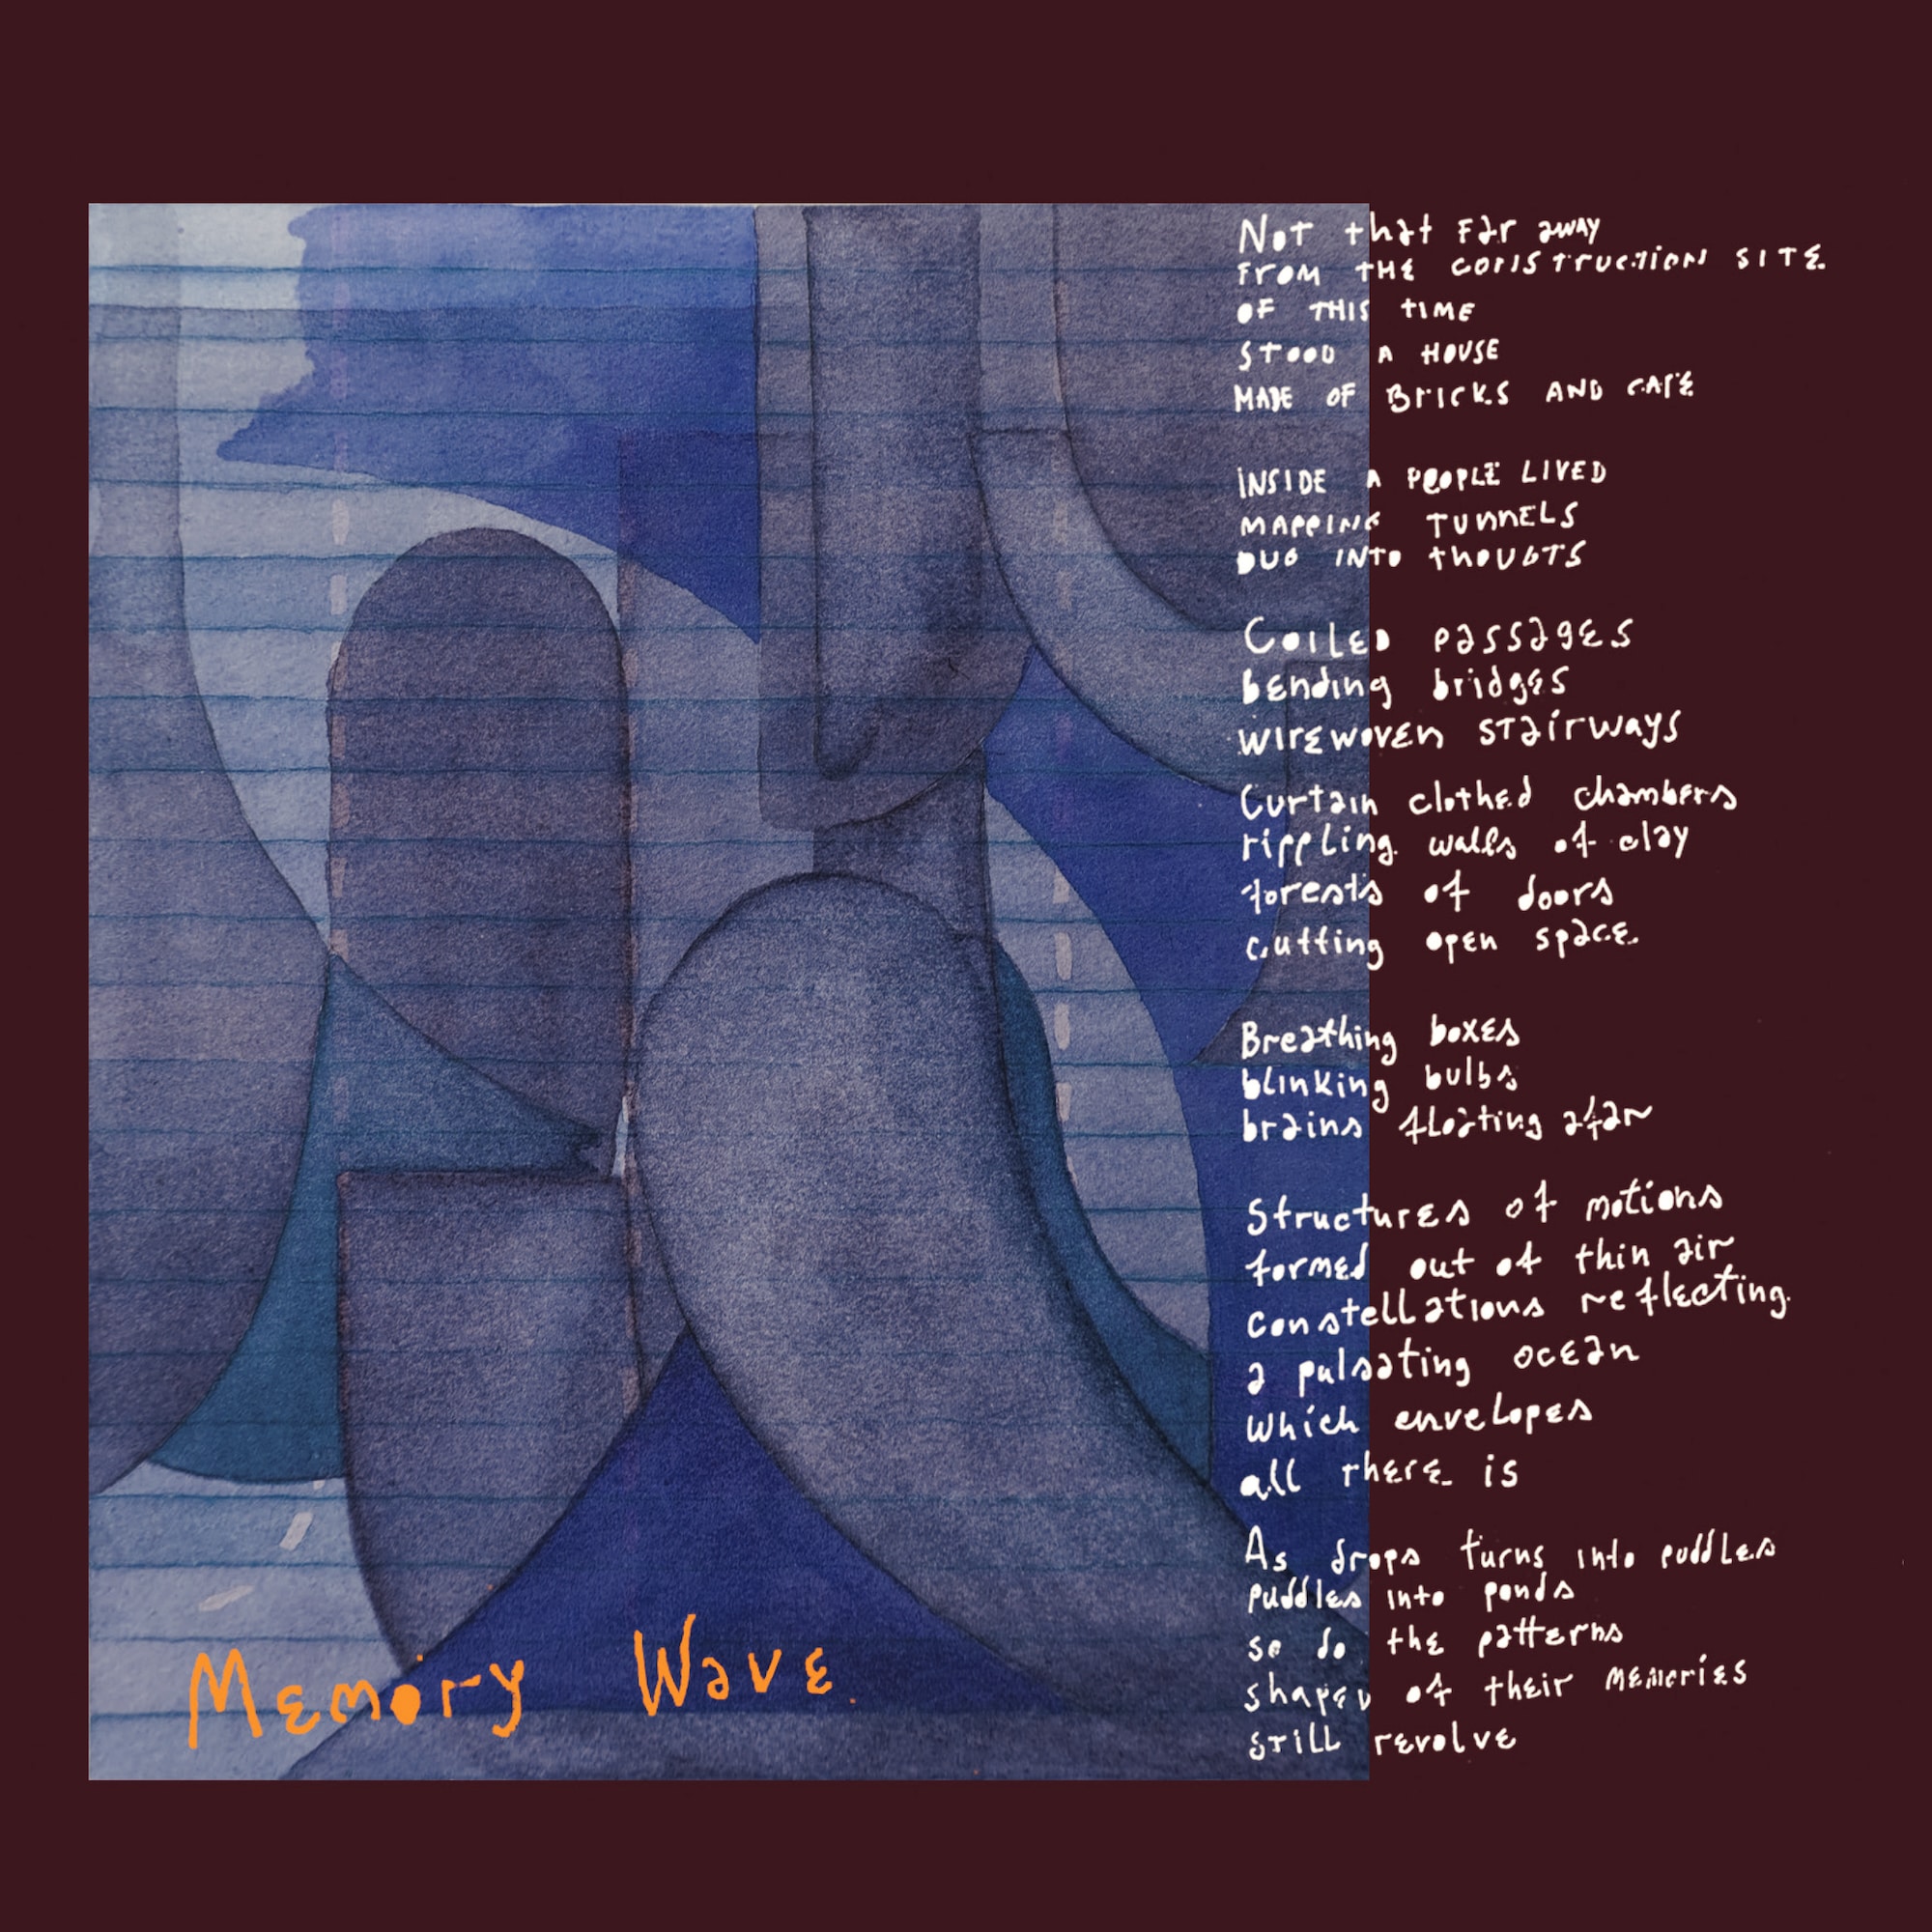 Not that Far away
FROM THE CONSTRUCTION SITE
OF THIS TIME
STOOD A HOUSE
MADE OF BRICKS AND CARE
INSIDE A PEOPLE LIVED
MAPPING TUNNELS
DUG INTO thoUGTS
Coiled passages
bending bridges
wirewoven stairways
Curtain clothed chambers
rippling walls of clay
forests of doors
cutting open space
Breathing boxes
blinking bulbs
brains floating afar
Structures of motions
formed out of thin air
constellations reflecting
a pulsating ocean
which envelopes
all there is
As drops turns into puddles
puddles into ponds
so do the patterns
shaped of their memories
still revolve
Memory Wave